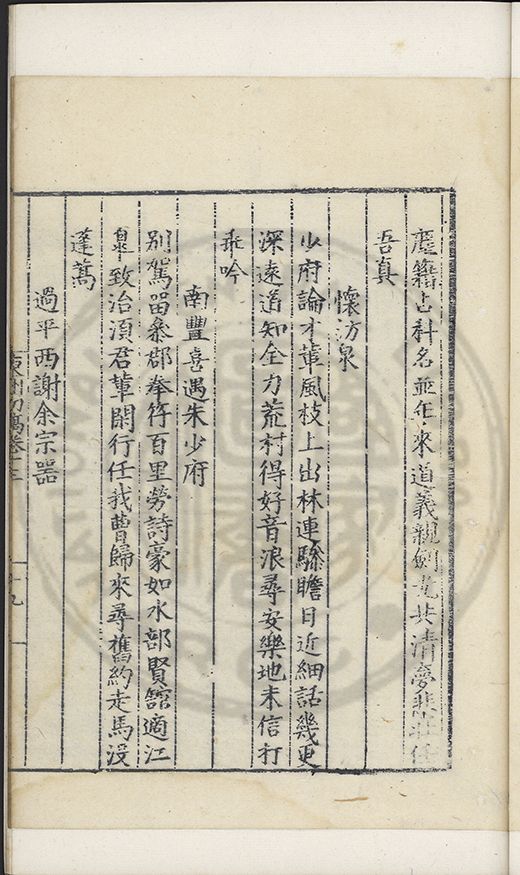 慶籍占科名並年來道義親劍光共清夢
吾真
懷汸泉
少府論才輩風枝上出林連驂瞻日近細話幾更
深遠道知全力荒村得好音浪尋安樂地未信打
乖吟
南豐喜遇朱少府
別駕留叅郡奉符百里勞詩豪如水部賢舘適江
臯致治須君輩閑行任我曹歸來尋舊約走馬沒
蓬蒿
過平西謝余宗器
初稿卷三
十九